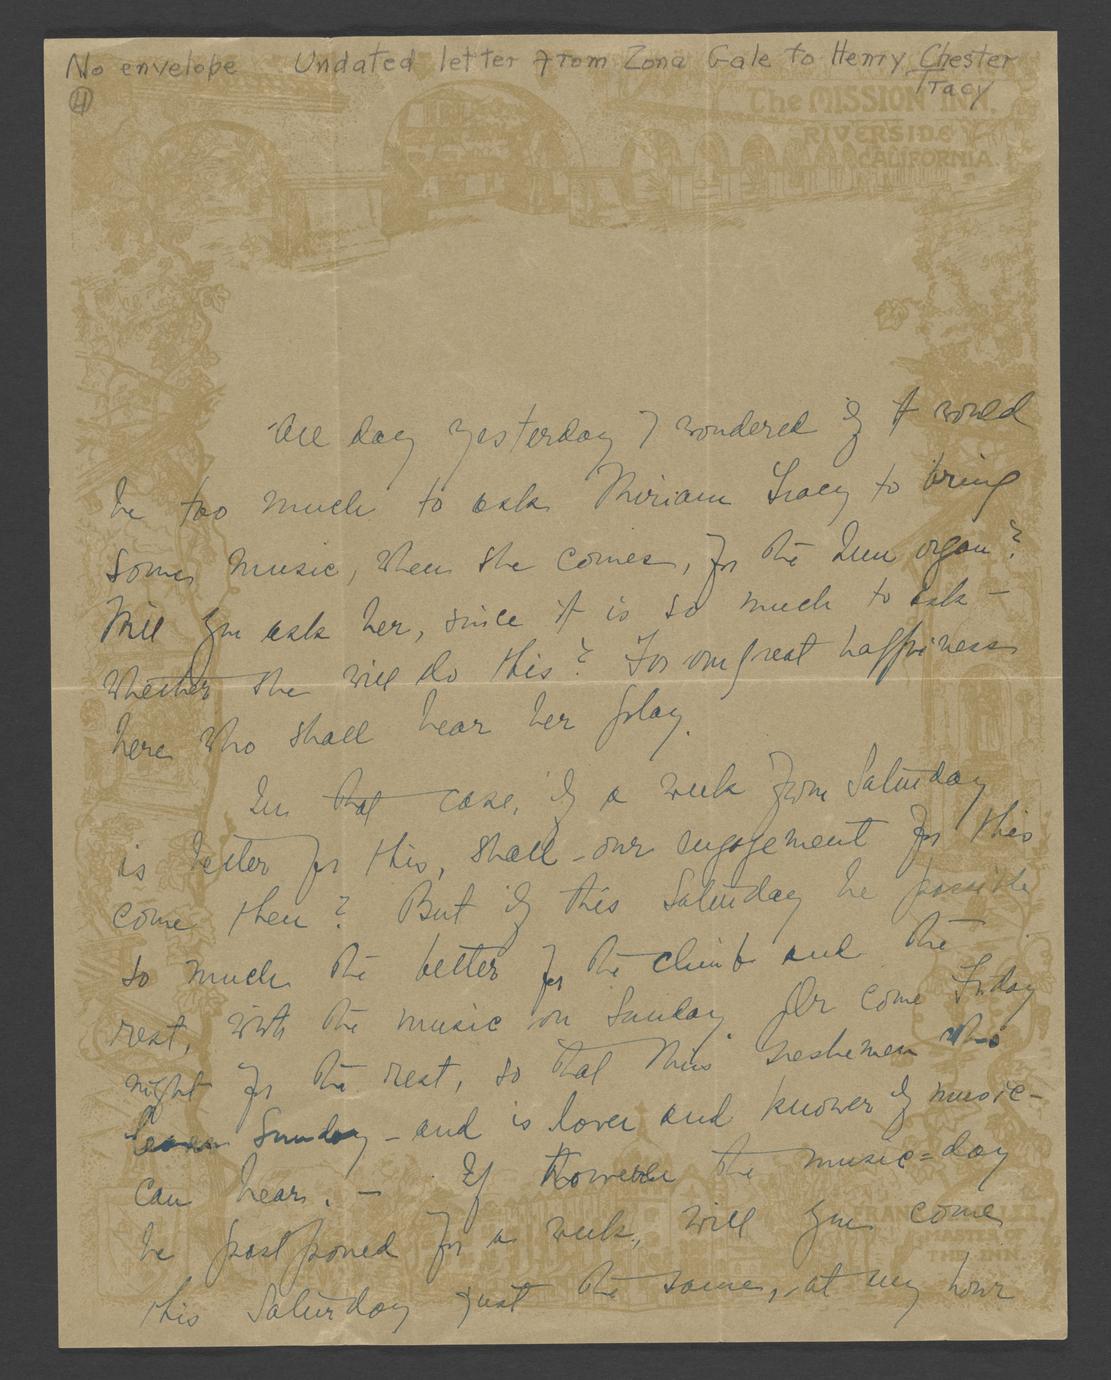 No envelope Undated letter from Zona Gale to Henry Chester
Tracy
4
The MISSION INN.
RIVERSIDE
CALIFORNIA.
All day yesterday I wondered if it would
be too much to ask Miriam Tracy to bring
some music, when she comes, for the Inn organ?
Will you ask her, since it is so much to ask –
whether she will do this? For our great happiness
here who shall hear her play.
In that case, if a week from Saturday
is better for this, shall our engagement for this
come then? But if this Saturday be possible
so much the better for the climb and the
rest, with the music on Sunday. Or come Friday
night for the rest, so that Miss who
leaves Sunday – and is lover and knower of music –
can hear. – If however the music=day
be postponed for a week, will you come
this Saturday just the same, at my hour
FRANK MILLER.
MASTER
THE INN.